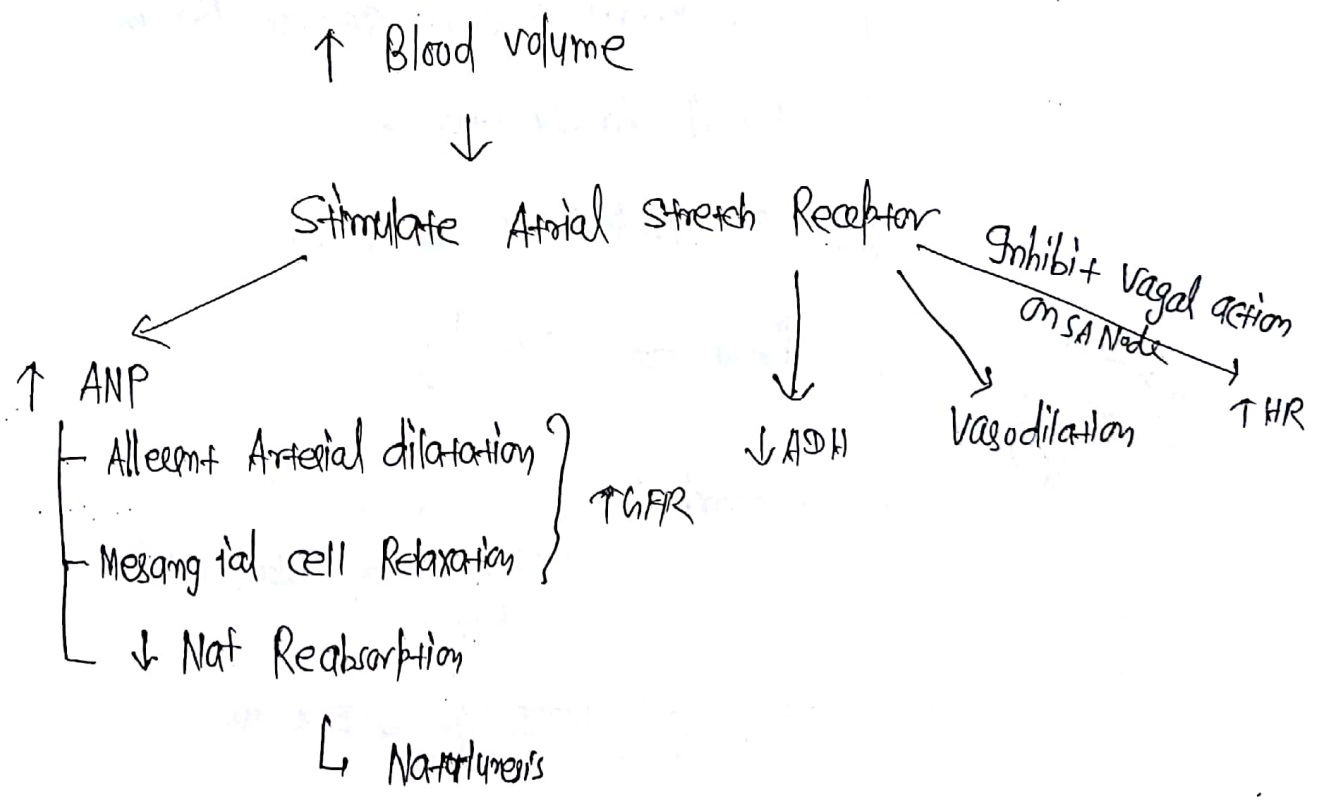 ↑ Blood volume
↓
Stimulate Atrial stretch Receptor
Inhibit vagal action
on SA Node
↑ ANP
↑ HR
Vasodilation
↓ ADH
Afferent Arterial dilatation
↑ GFR
Mesangial cell Relaxation
↓ Na+ Reabsorption